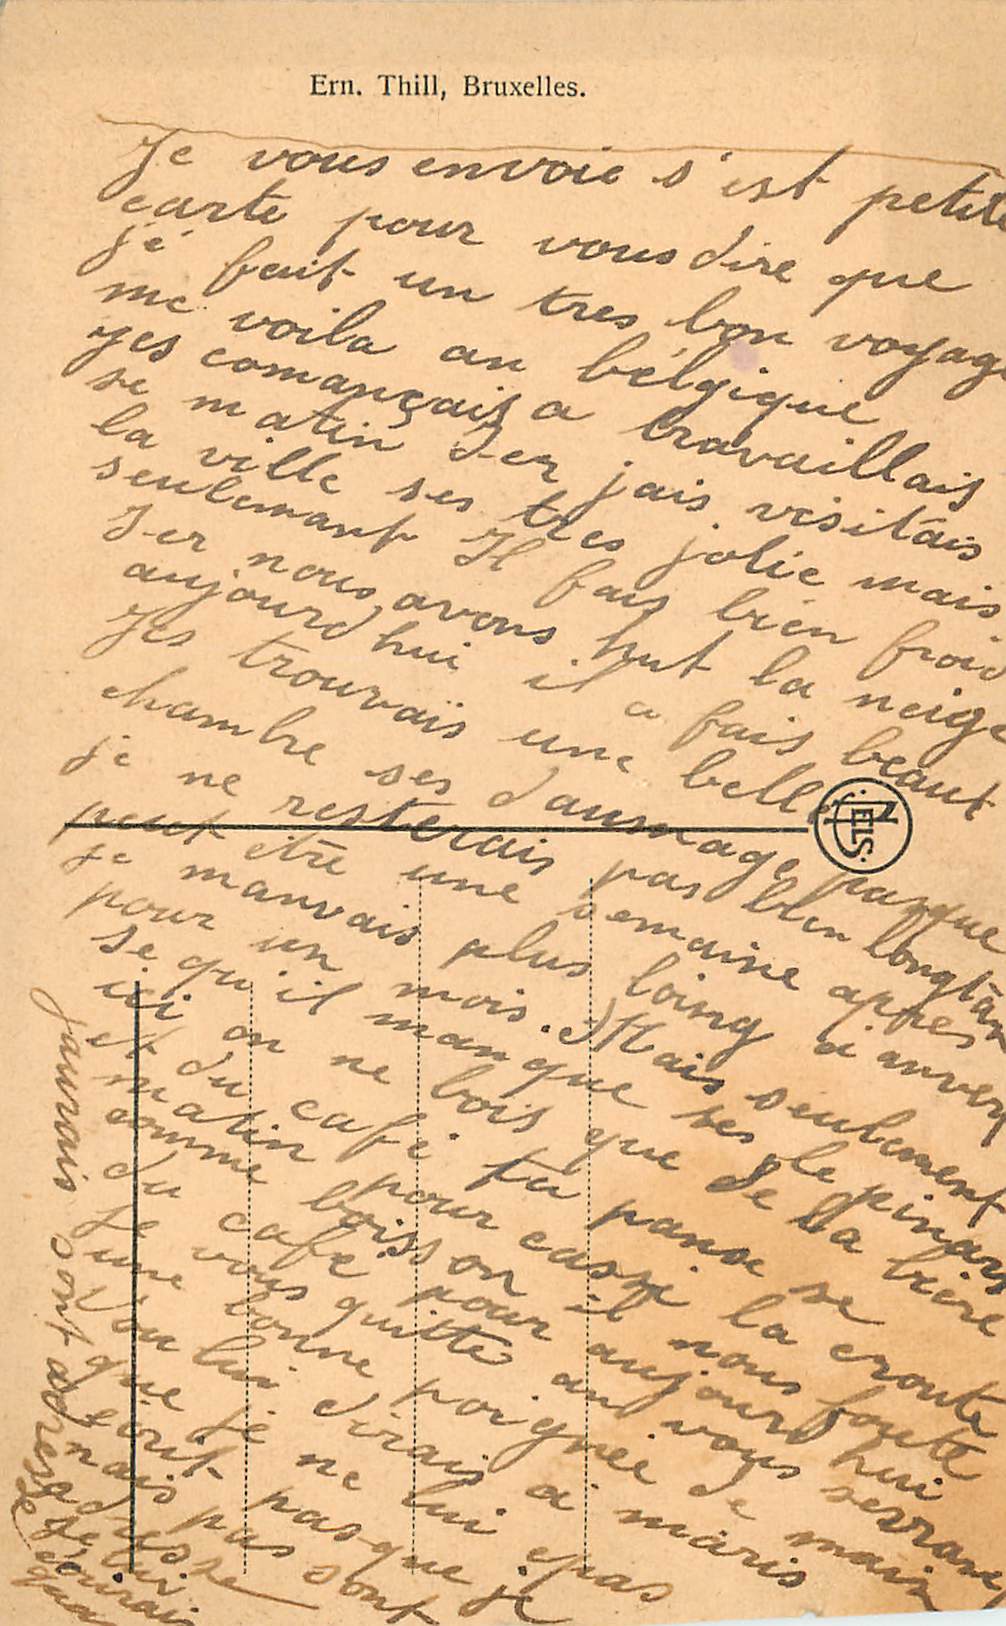 Ern. Thill, Bruxelles.
Je vous envoie s'est petite
carte pour vous dire que
jé fait un tres bon voyage
me voila an bélgique
yes comançais a travaillais
se matin Ier jais visitais
la ville ses tres jolie mais
seulemant Il fais bien froid
Ier nous avons hut la neige
aujourd'hui il a fais beaut
Jes trouvais une belle
chambre ses daumage parque
je ne resterais pas bien longtân
peut être une semaine apres
je manvais plus loing a anvers
pour un mois. Mais seulement
se qu'il manque ses le pinard
ici on ne bois que de la bière
et du café tu panse se
matin pour cassé la croute
comme boisson il nous foute
du cafe pour aujourd hui
Je vous quitte an vous serrant
une bonne poignée de main
Tu lui dirais a maris
que je ne lui pas
écrit pasque je
nais pas sont
adresse
jaurais sont adresse
je lui
écrirais
NELS